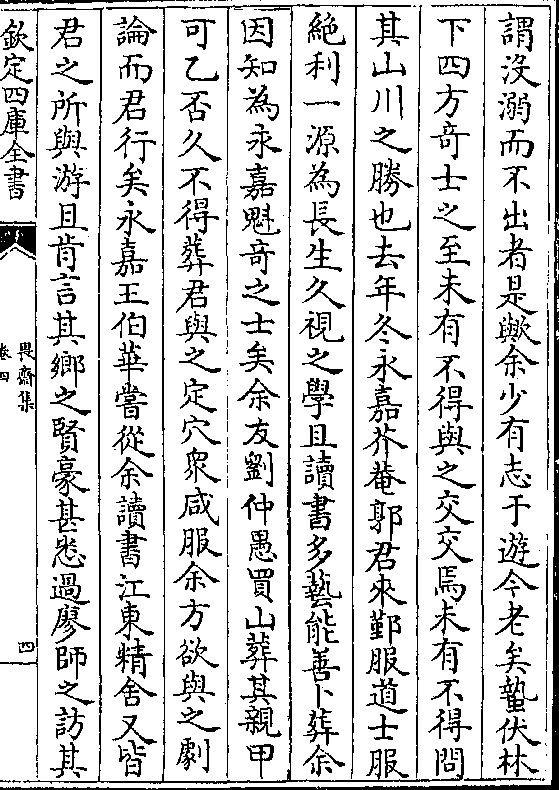 謂沒溺而不出者是歟余少有志于遊今老矣蟄伏林
下四方奇士之至未有不得與之交交焉未有不得問
其山川之勝也去年冬永嘉芥菴郭君來鄞服道士服
絶利一源為長生久視之學且讀書多藝能善卜葬余
因知為永嘉魁奇之士矣余友劉仲愚買山葬其親甲
可乙否久不得葬君與之定穴衆咸服余方欲與之劇
論而君行矣永嘉王伯華嘗從余讀書江東精舍又皆
君之所與游且肯言其鄉之賢豪甚悉過廖師之訪其
欽定四庫全書
畏齋集
卷四
四